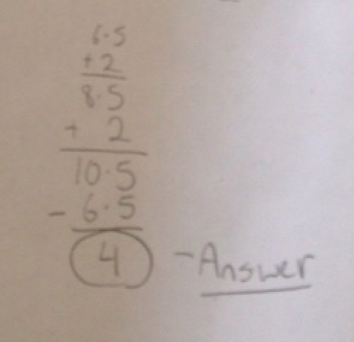 6.5
+2
8.5
+ 2
10.5
- 6.5
4 - Answer